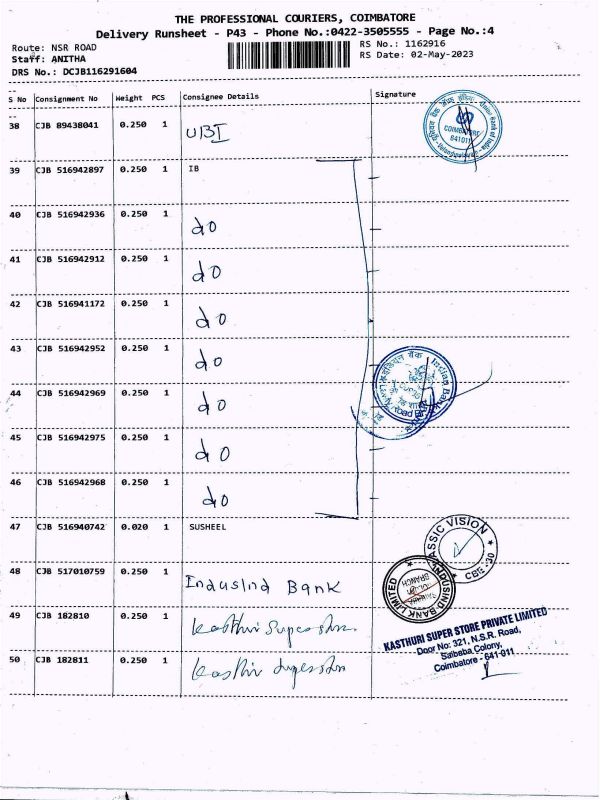 THE PROFESSIONAL COURIERS, COIMBATORE
Delivery Runsheet - P43 - Phone No.:0422-3505555 - Page No.:4
Route: NSR ROAD
RS No.: 1162916
Staff: ANITHA
RS Date: 02-May-2023
DRS No.: DCJB116291604
S No Consignment No Weight PCS Consignee Details Signature
38 CJB 89438041 0.250 1 UBI
COIMBATORE
641011
39 CJB 516942897 0.250 1 IB
40 CJB 516942936 0.250 1 do
41 CJB 516942912 0.250 1 do
42 CJB 516941172 0.250 1 do
43 CJB 516942952 0.250 1 do
इंडियन बैंक Indian Bank
44 CJB 516942969 0.250 1 do
45 CJB 516942975 0.250 1 do
46 CJB 516942968 0.250 1 do
47 CJB 516940742 0.020 1 SUSHEEL
ASSIC VISION
CBE - 30
48 CJB 517010759 0.250 1 IndusInd Bank
INDUSIND BANK LIMITED
BRANCH
49 CJB 182810 0.250 1 Kasthuri Super store
KASTHURI SUPER STORE PRIVATE LIMITED
Door No: 321, N.S.R. Road,
Saibaba Colony,
Coimbatore - 641 011
50 CJB 182811 0.250 1 Kasthuri Super store